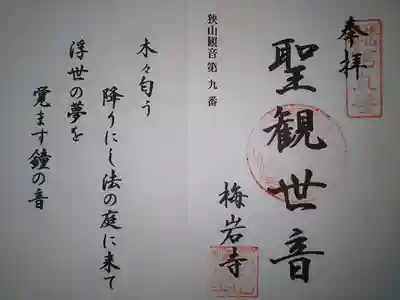 奉拝
聖観世音
梅岩寺
狭山観音第九番
木々匂う
降りにし法の庭に来て
浮世の夢を
覚ます鐘の音